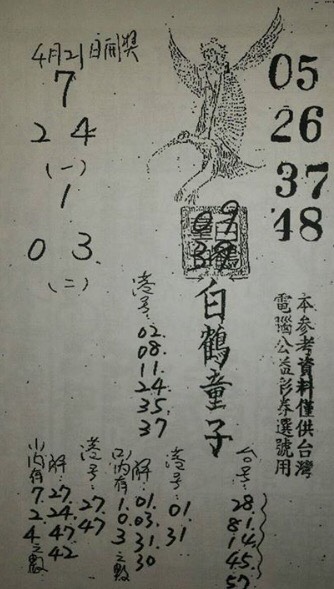 4月21日開獎
7
2 4
(一)
1
0 3
(二)
05
26
37
48
白鶴童子
本参考資料僅供台灣
電腦公益彩券選號用
港号:
02.
08.
11.
24.
35.
37
台号:
28.
81.
14.
45.
57.
港号:
01.
31
解:
01.
03.
31.
30
口內有
1.
0.
3之數
港号:
27.
47
解:
27.
24.
47.
42
口內有
7.
2.
4之數